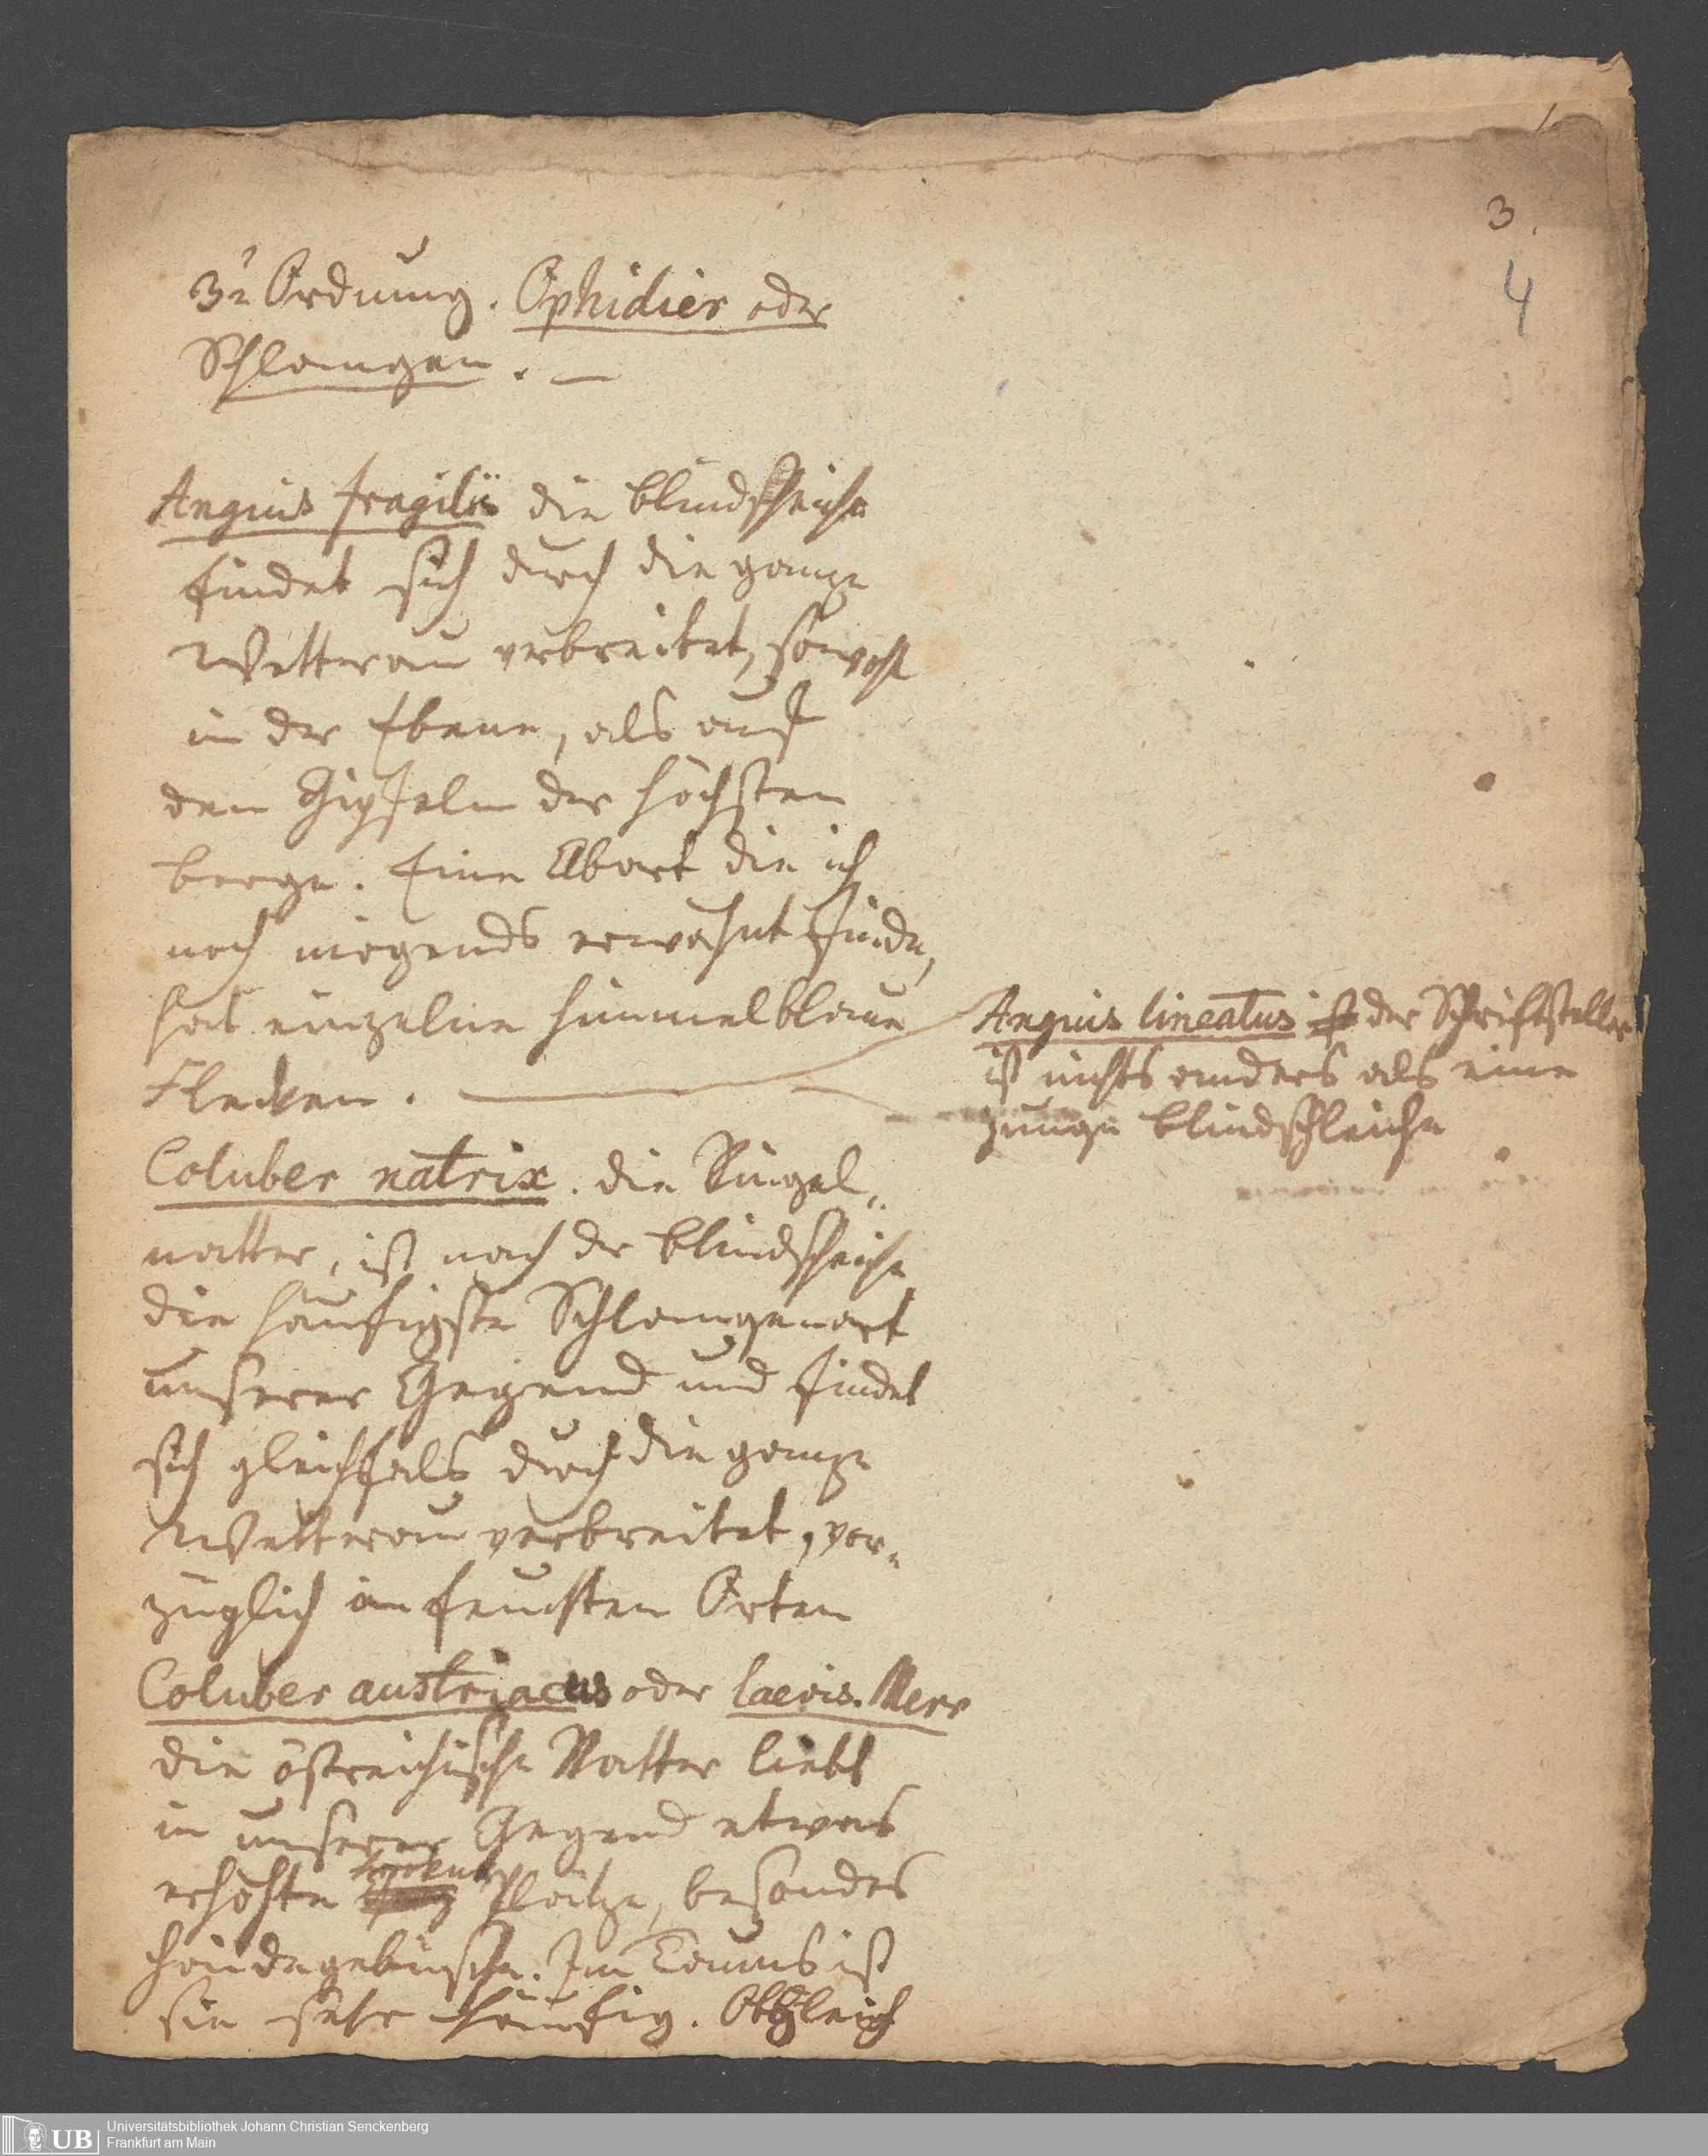 3.
4
3te Ordnung. Ophidier oder
Schlangen. —
Anguis fragilis die Blindschleiche
findet sich durch die ganze
Wetterau verbreitet, sowohl
in der Ebene, als auf
den Gipfeln der höchsten
Berge. Eine Abart die ich
noch nirgends erwähnt finde,
hat einzelne himmelblaue
Flecken.
Anguis lineatus ist der Schriftsteller
ist nichts anders als eine
junge Blindschleiche
Coluber natrix. die Ringel„
natter, ist nach der Blindschleiche
die häufigste Schlangenart
unserer Gegend und findet
sich gleichfals durch die ganze
Wetterau verbreitet, vor„
züglich an feuchten Orten
Coluber austriacus oder laevis. Merr
die östreichische Natter liebt
in unserer Gegend etwas
trockne
erhöhte Plätze, besonders
Haidegebüsche. Im Taunus ist
sie sehr häufig. Obgleich
UB
Universitätsbibliothek Johann Christian Senckenberg
Frankfurt am Main